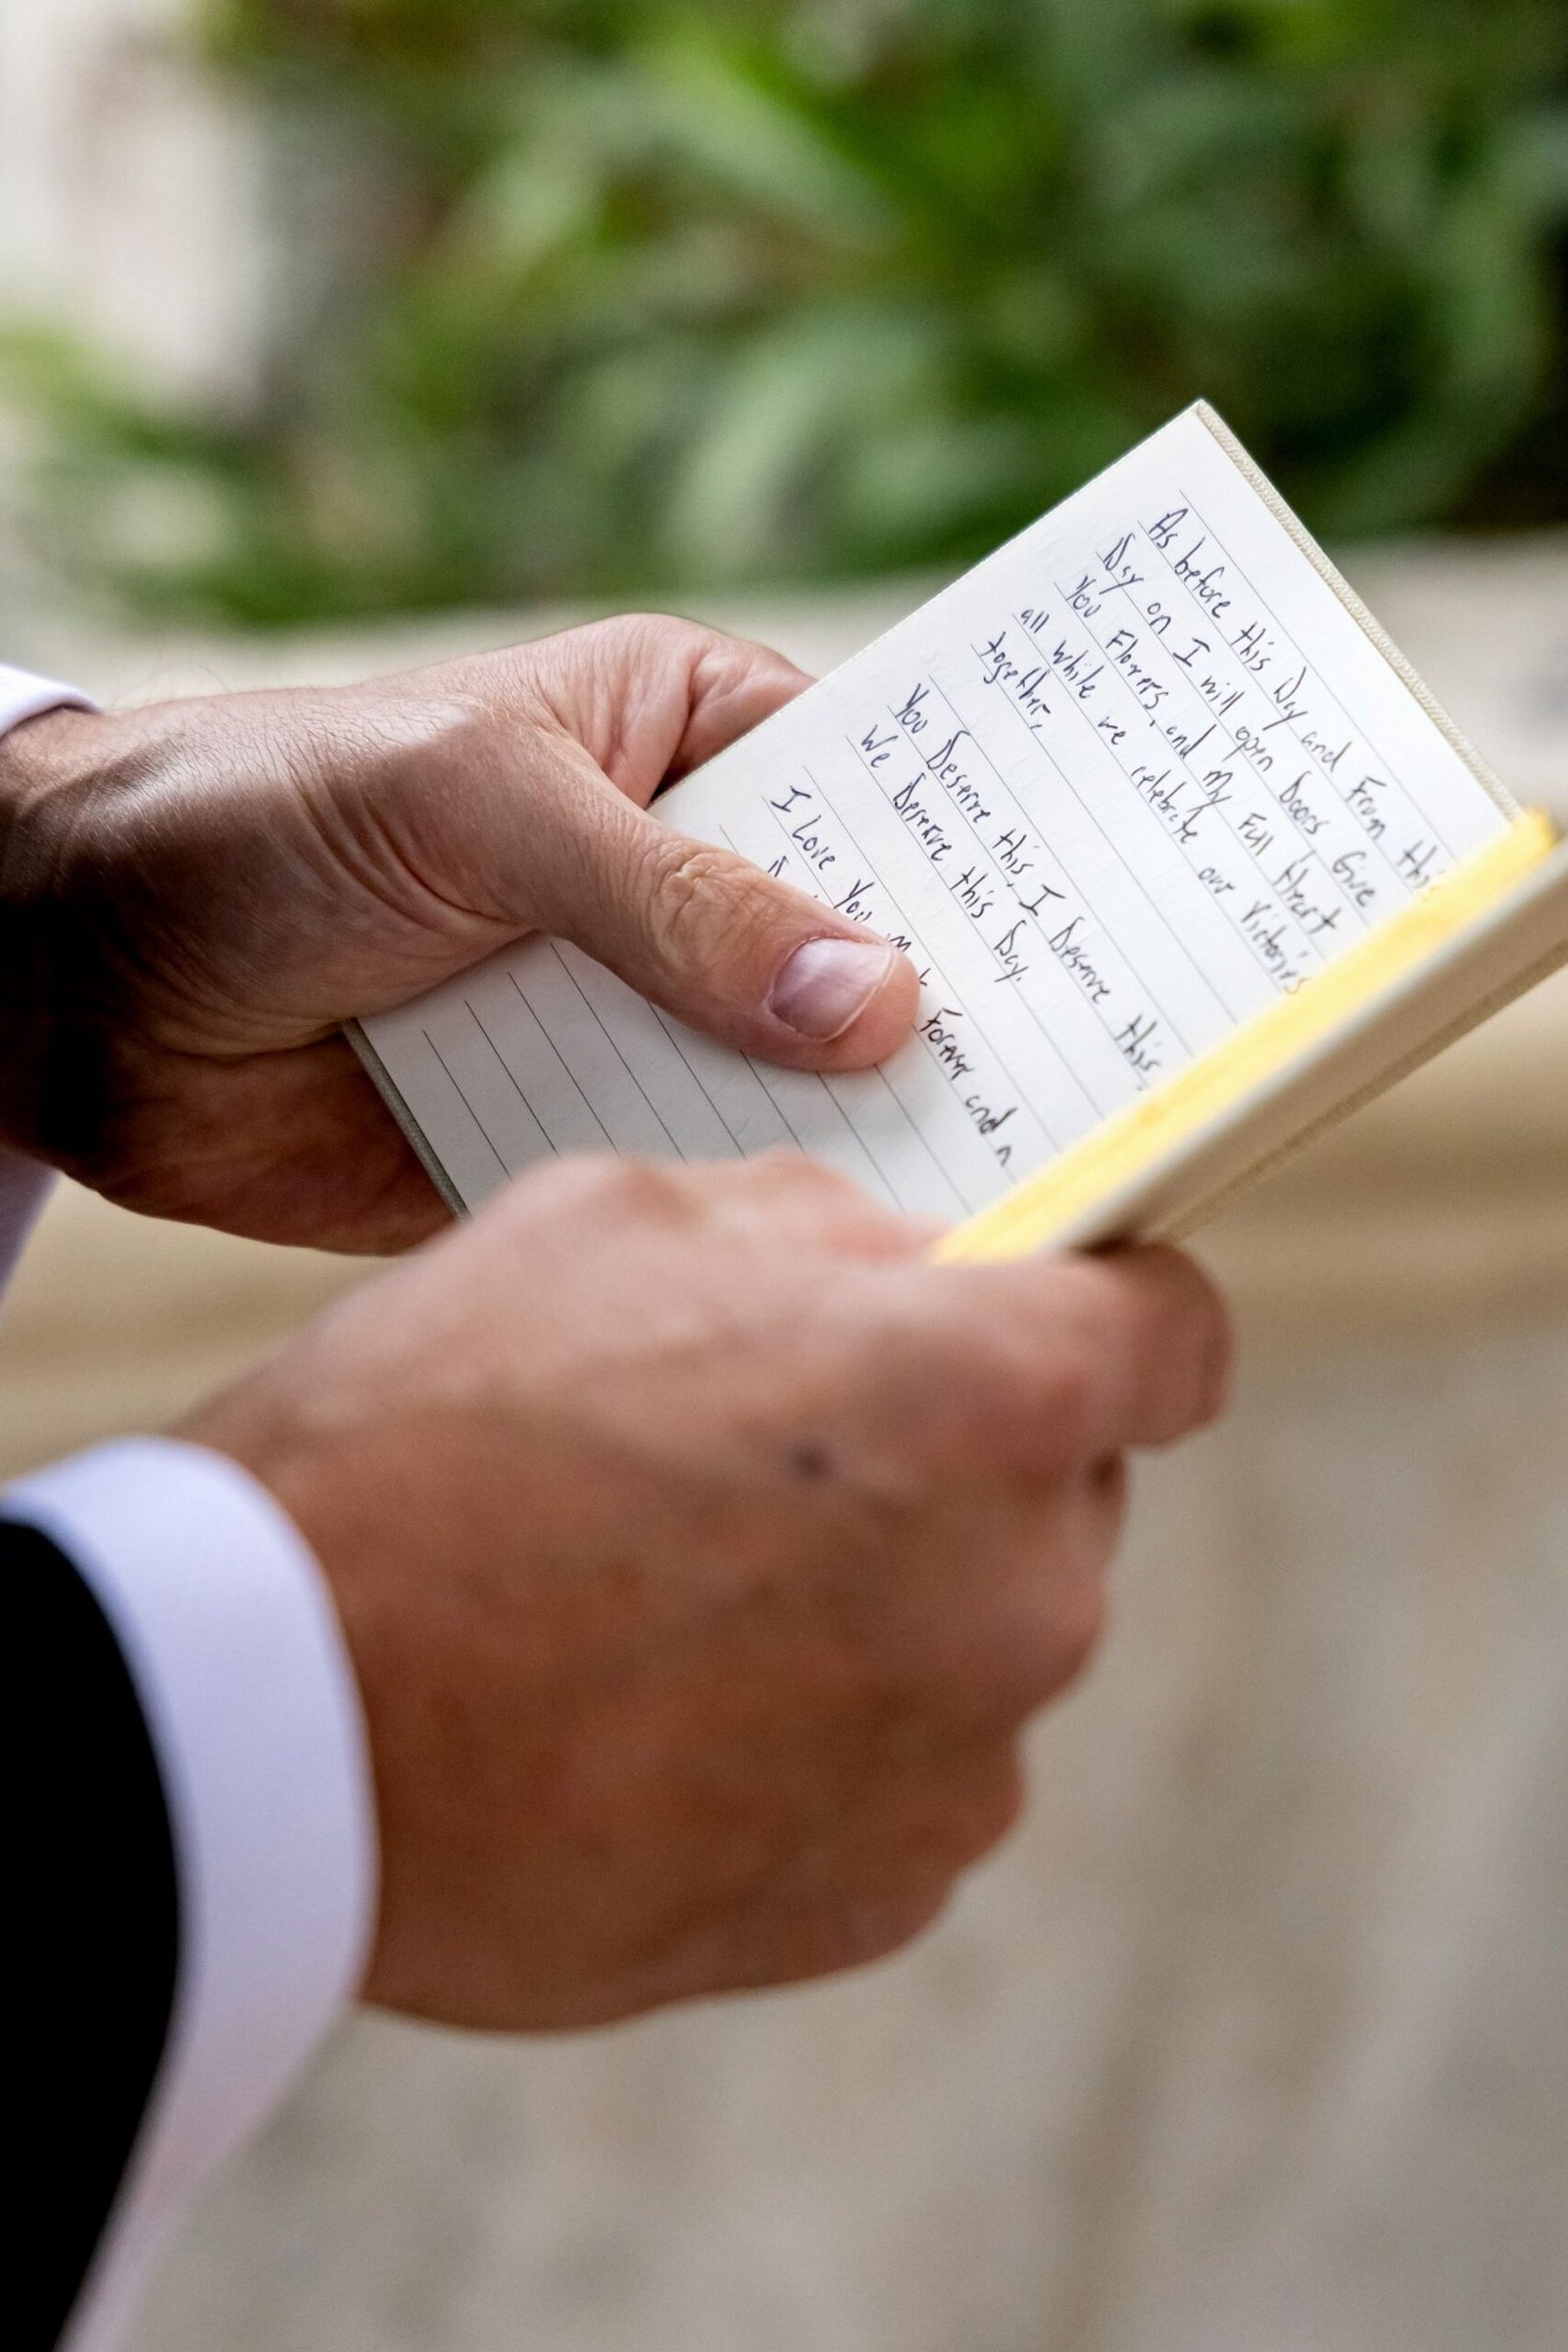 As before this Day and From this
Day on I will open Doors Give
You Flowers, and My Full Heart
all while we celebrate our Victories
together,
You Deserve this, I Deserve this,
We Deserve this Day.
I Love You Forever and